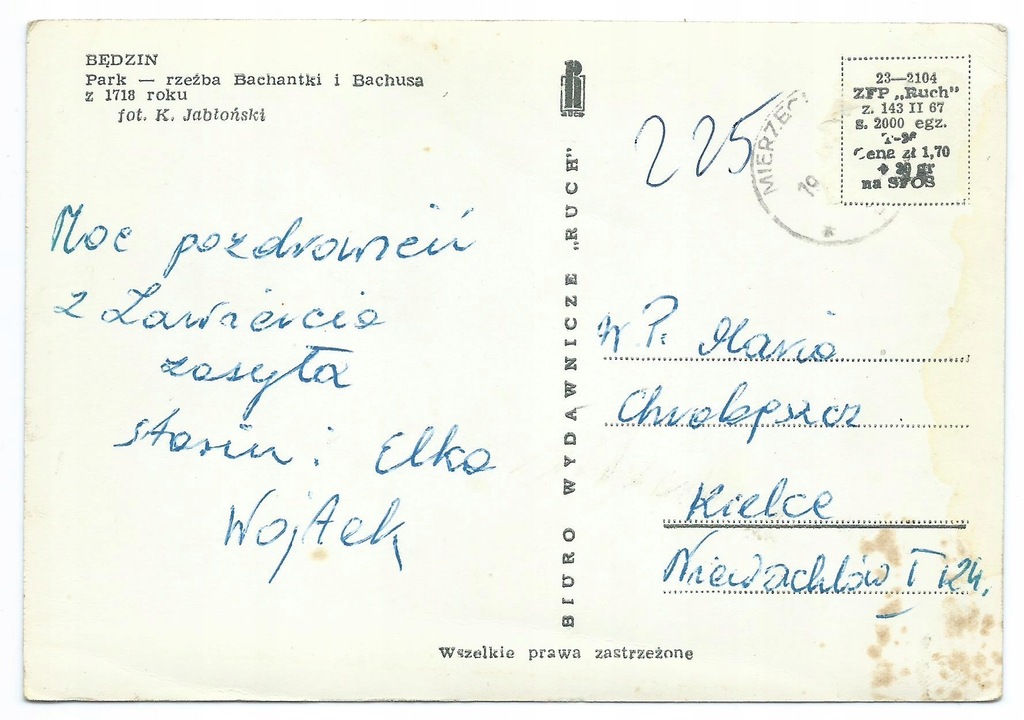 BĘDZIN
Park — rzeźba Bachantki i Bachusa
z 1718 roku
fot. K. Jabłoński
Moc pozdrowień
z Zawiercia
zasyła
i Elka
Wojtek
BIURO WYDAWNICZE „RUCH”
RUCH
225
MIERZĘCI
19
23—2104
ZFP „Ruch”
z. 143 II 67
s. 2000 egz.
T-96
Cena zł 1,70
+ 20 gr
na SFOS
W.P. Maria
Chrobpszcz
Kielce
Niewachlów I 124.
Wszelkie prawa zastrzeżone